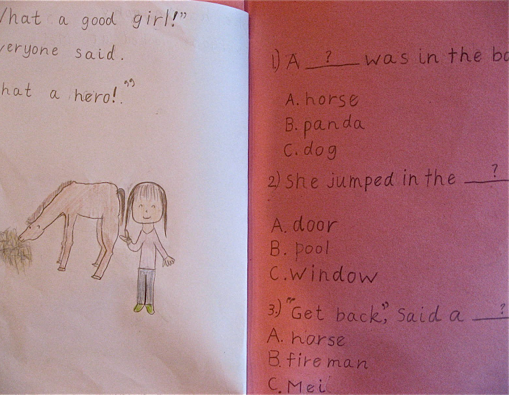 What a good girl!"
veryone said.
hat a hero!."
1) A ? was in the ba
A. horse
B. panda
C. dog
2) She jumped in the ?
A. door
B. pool
C. window
3.) "Get back", Said a ?
A. horse
B. fireman
C. Mei